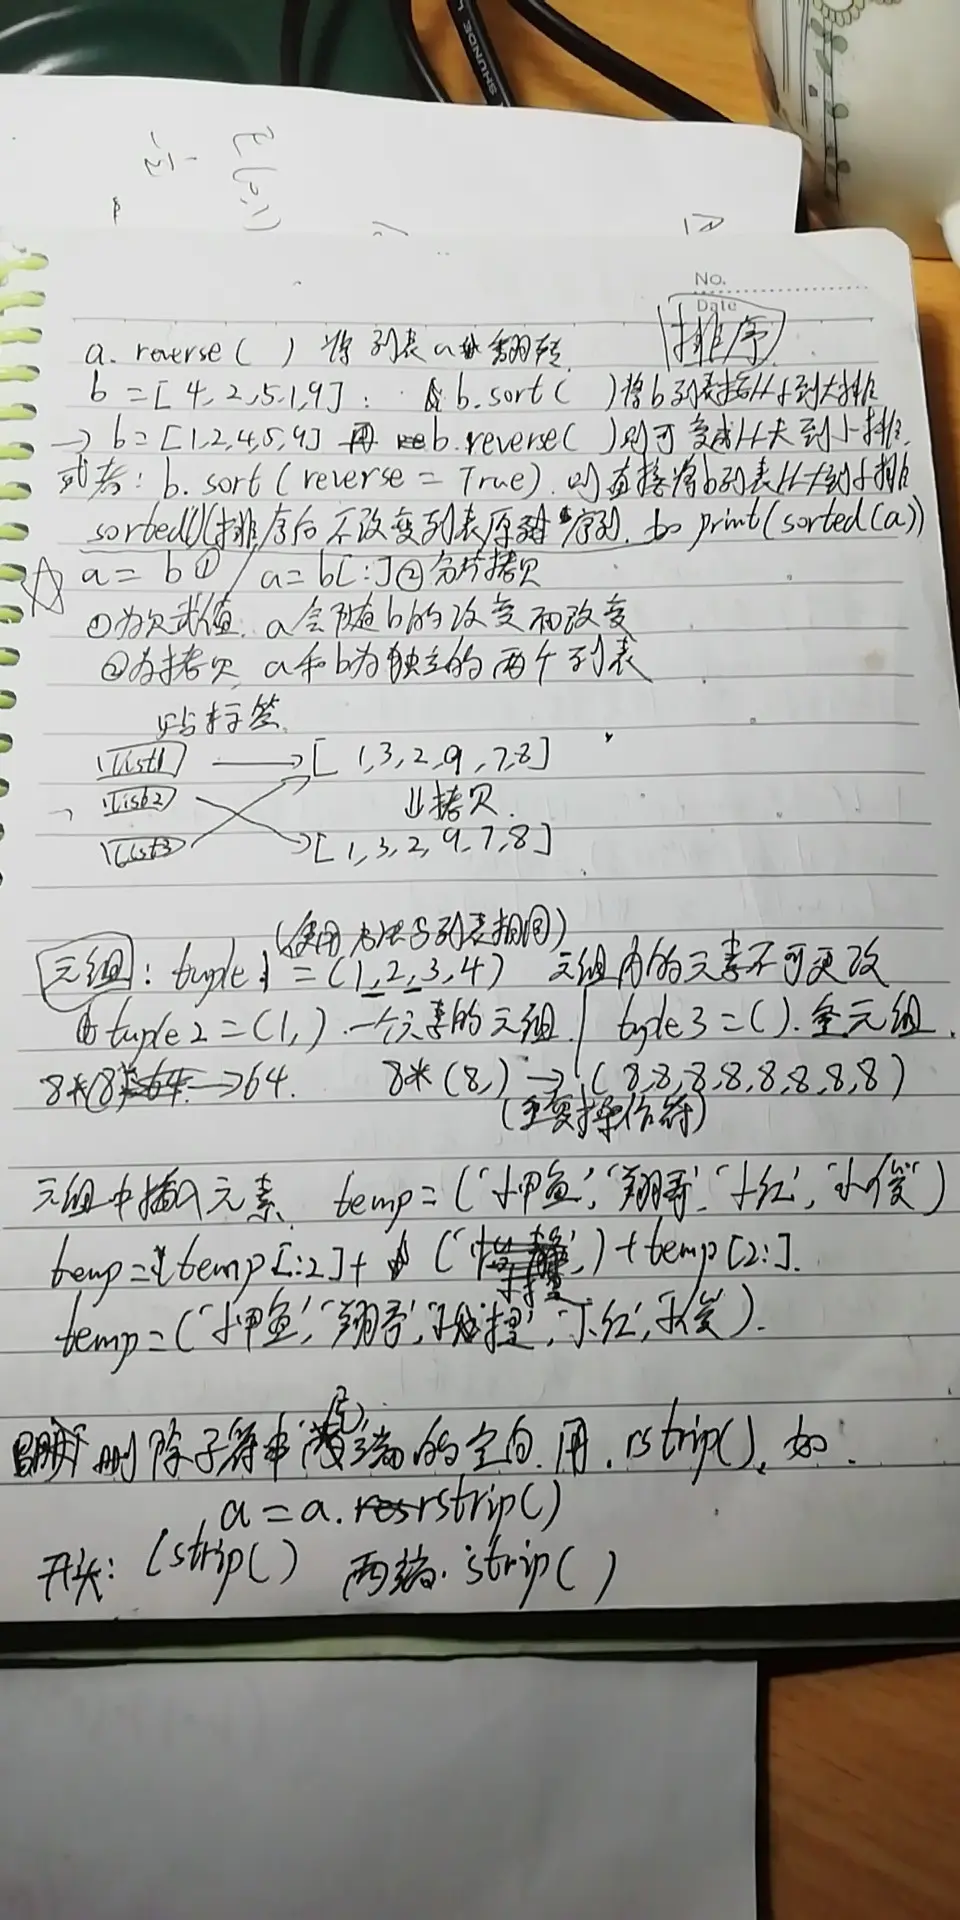 SHUNDE
No.
Date
排序
a. reverse( ) 将列表a翻转
b = [4, 2, 5, 1, 9]; b.sort( ) 将b列表按从小到大排
→ b = [1, 2, 4, 5, 9] 再 b.reverse( ) 则可变成从大到小排.
或者: b. sort (reverse = True). 则直接将b列表从大到小排
sorted()(排序后不改变列表原 序列. to print(sorted(a))
☆ a = b ① / a = b[:] ② 分片拷贝
①为 值, a会随b的改变而改变
②为拷贝, a和b为独立的两个列表
贴标签
list1 → [1,3,2,9,7,8]
list2 ⇓拷贝.
list3 [1,3,2,9,7,8]
(使用方法与列表相同)
元组: tuple1 = (1,2,3,4) 元组内的元素不可更改
tuple2 = (1,). 一个元素的元组 | tuple3 = (). 空元组.
8*(8) → 64. 8* (8,) → (8,8,8,8,8,8,8,8)
(重复操作符)
元组中插入元素. temp = ('小甲鱼', '翔哥', '小红', '小俊')
temp = temp[:2] + (' ',) + temp[2:].
temp = ('小甲鱼', '翔哥', ' ', '小红', '小俊').
删除字符串尾端的空白. 用.rstrip(), 如.
a = a. rstrip()
开头: lstrip() 两端. strip( )